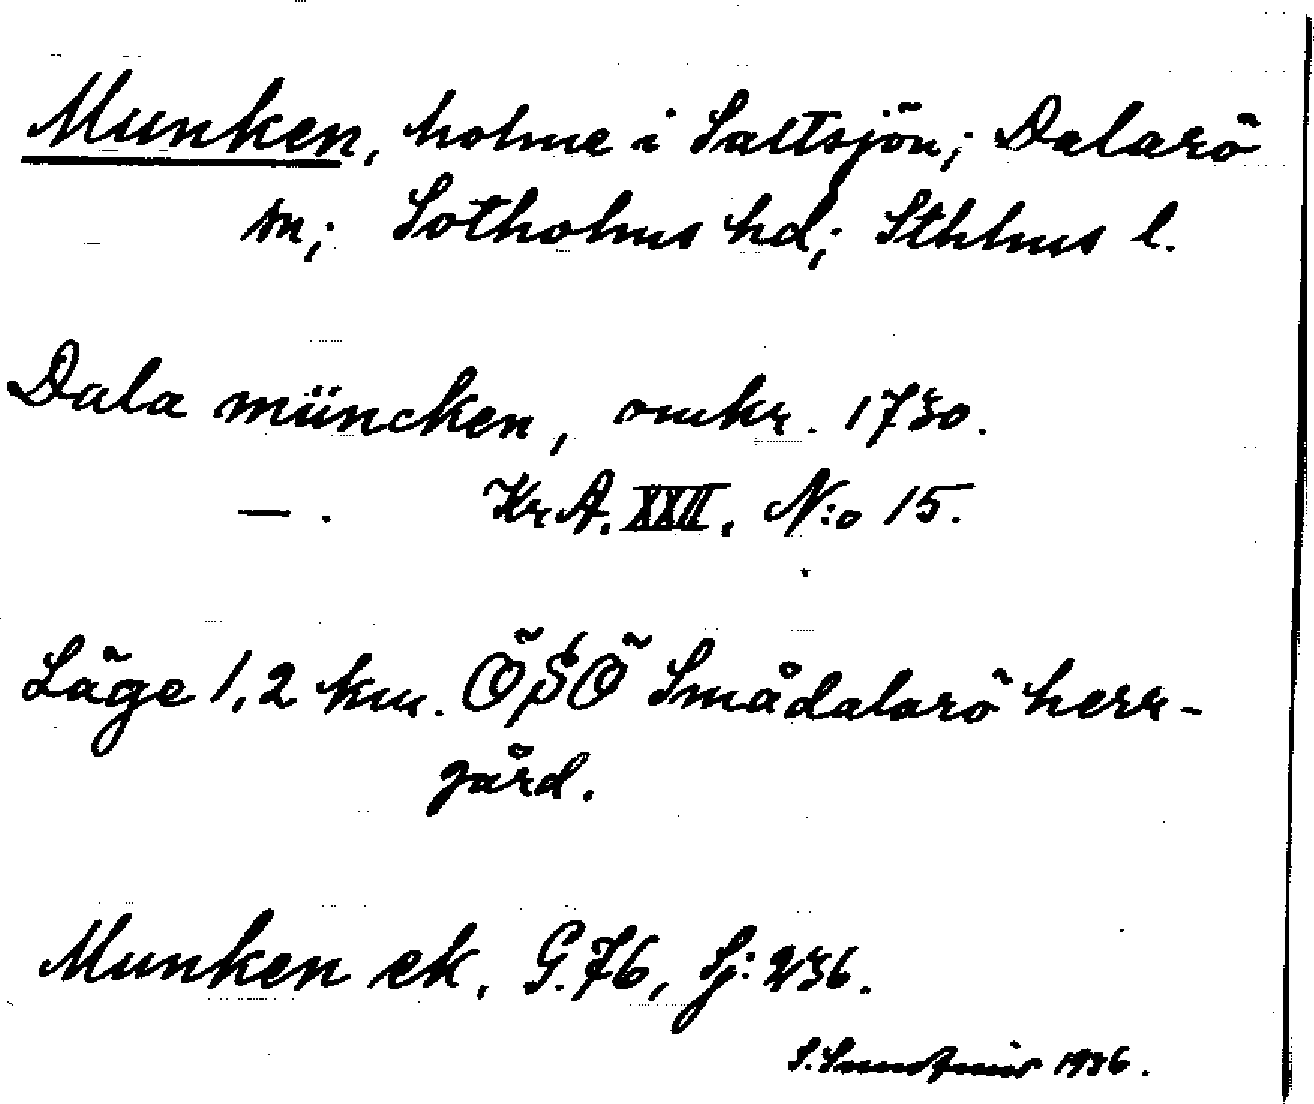 Munken, holme i Saltsjön; Dalarö
sn; Sotholms hd; Sthlms l.
Dala müncken, omkr. 1730.
— . KrA. XXII. N:o 15.
Läge 1,2 km. ÖSÖ Smådalarö herr-
gård.
Munken ek. G.76, Sj: 236.
S. 1936.